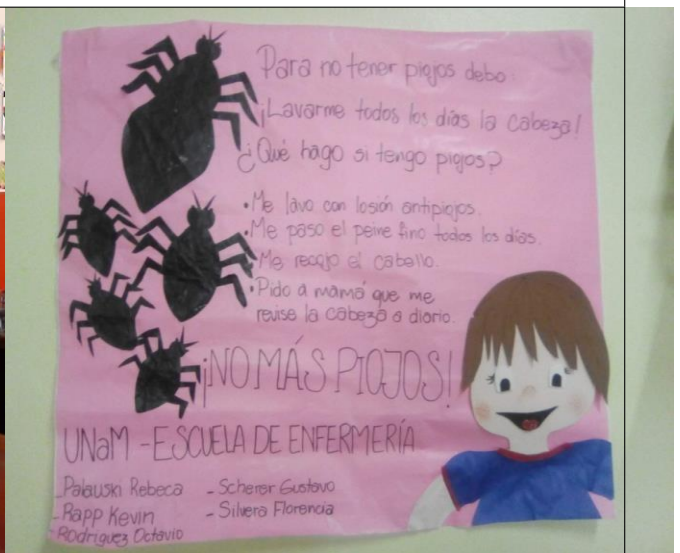 Para no tener piojos debo:
¡Lavarme todos los días la cabeza!
¿Qué hago si tengo piojos?
•Me lavo con losión antipiojos.
•Me paso el peine fino todos los días.
•Me recojo el cabello.
•Pido a mamá que me
revise la cabeza a diario.
¡NO MÁS PIOJOS!
UNaM - ESCUELA DE ENFERMERÍA
- Palauski Rebeca
- Rapp Kevin
- Rodriguez Octavio
- Scherer Gustavo
- Silvera Florencia